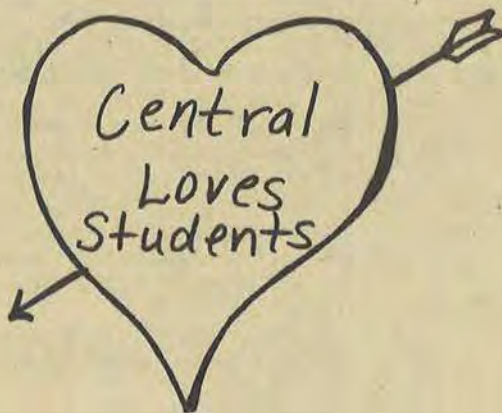 Central
Loves
Students